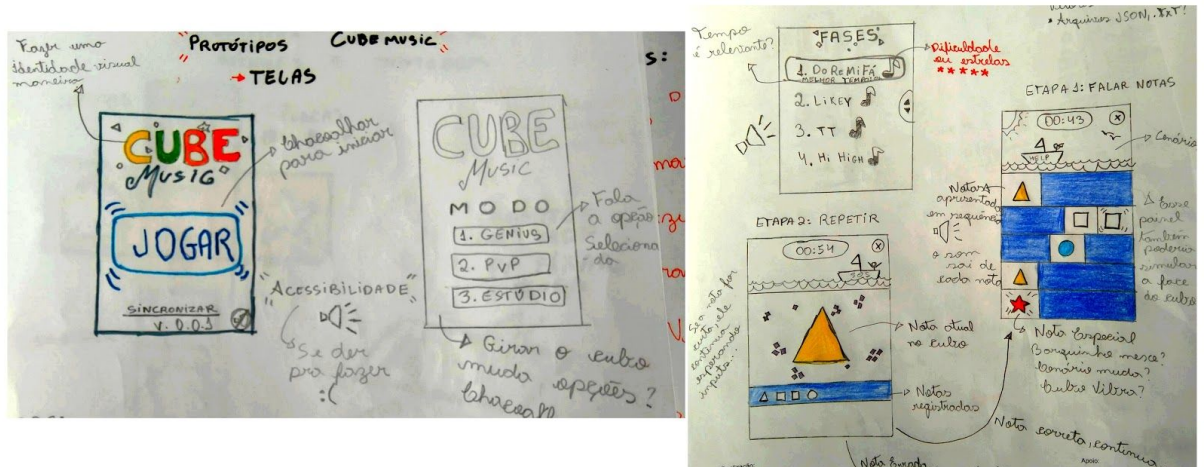 Fazer uma
identidade visual
maneira
PROTÓTIPOS CUBE MUSIC
→ TELAS
S:
CUBE
MUSIC
JOGAR
SINCRONIZAR
V. 0.0.1
Chacoalhar
para iniciar
"ACESSIBILIDADE"
Se der
pra fazer
:(
CUBE
MUSIC
MODO
1. GENIUS
2. PVP
3. ESTÚDIO
Fala
a opção
Seleciona
do
Girar o cubo
muda opções?
Tempo
é relevante?
FASES
1. DOREMIFÁ
MELHOR TEMPO
2. LIKEY
3. TT
4. HI HIGH
Dificuldade
ou estrelas
*****
• Arquivos JSON, .TXT!
ETAPA 1: FALAR NOTAS
00:43
X
HELP
Cenário
Notas
apresentada
em sequência
o som
sai de
cada nota
Esse
painel
também
poderia
simular
a face
do cubo
Nota Especial
Barquinho mexe?
Cenário muda?
Cubo Vibra?
ETAPA 2: REPETIR
00:54
X
SOS
Se a nota for
certa, ele
continua
esperando
inputs...
Nota atual
no cubo
Notas
registradas
Nota correta, continua
Nota Errada
Apoio: